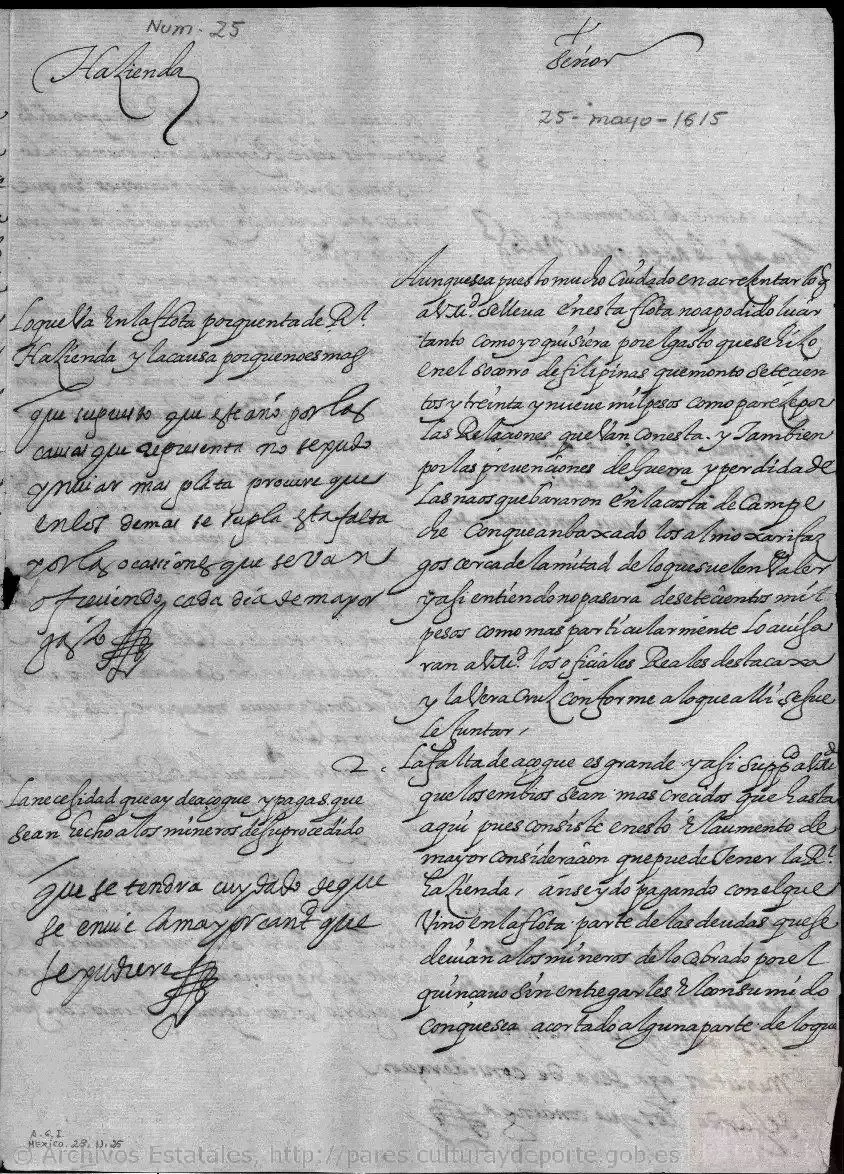 Num. 25
Hazienda
Señor
25-mayo-1615
Aunque sea puesto mucho cuidado en acresentar lo q
a V.M.d se lleva en esta flota no a podido luzir
tanto como yo quisiera por el gasto que se hizo
en el socorro de filipinas que monto setecien
tos y treinta y nueve mil pesos como parece por
las Relaciones que van con esta. y Tambien
por las prevenciones de Guerra y perdida de
las naos que bararon en la costa de Campe
che conque an baxado los almoxarifaz
gos cerca de la mitad de lo que suelen valer
y asi entiendo no pasara de setecientos mil
pesos como mas particularmente lo avisa
ran a V.M.d los oficiales Reales desta caxa
y la Vera Cruz conforme a lo que alli se fue
le juntar,
Lo que Va En la flota por quenta de Rl.
Hazienda y la causa por que no es mas
que supuesto que este año por las
causas que representa no se pudo
ynviar mas plata procure que
en los demas se supla esta falta
por las ocasiones que se van
ofreciendo cada dia de mayor
gasto
2. La falta de açogue es grande y asi Suppco a V.M.d
que los embios sean mas creçidos que hasta
aqui pues consiste en esto El aumento de
mayor consideracion que puede Tener la Rl.
hazienda, anse ydo pagando con el que
Vino en la flota parte de las deudas que se
devian a los mineros de lo cobrado por el
quincavo sin entregarles El consumido
conque sea acortado alguna parte de lo que
La necesidad que ay de açogue y pagas que
sean hecho a los mineros de su procedido
que se tendra cuydado de que
se envie la mayor cantd que
se pudiere
A.G.I.
Mexico. 28. N. 25
© Archivos Estatales, http://pares.culturaydeporte.gob.es